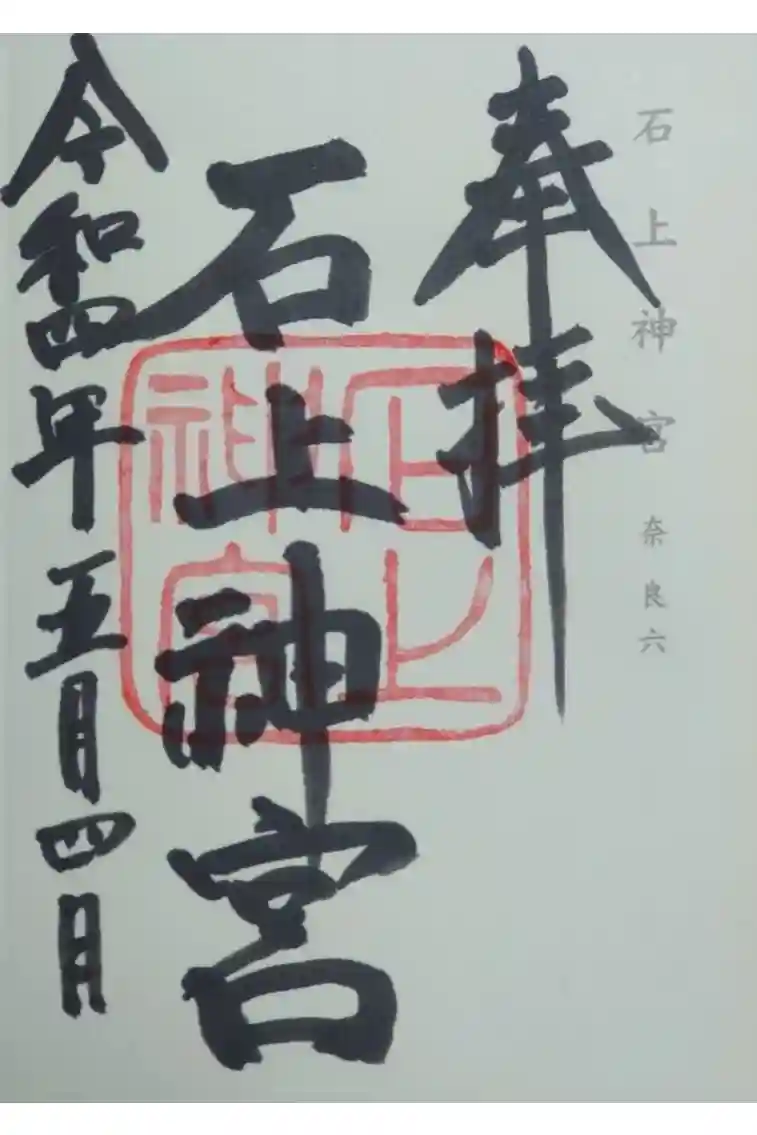 石上神宮 奈良六
奉拝
石上神宮
令和四年五月四月
石上
神宮